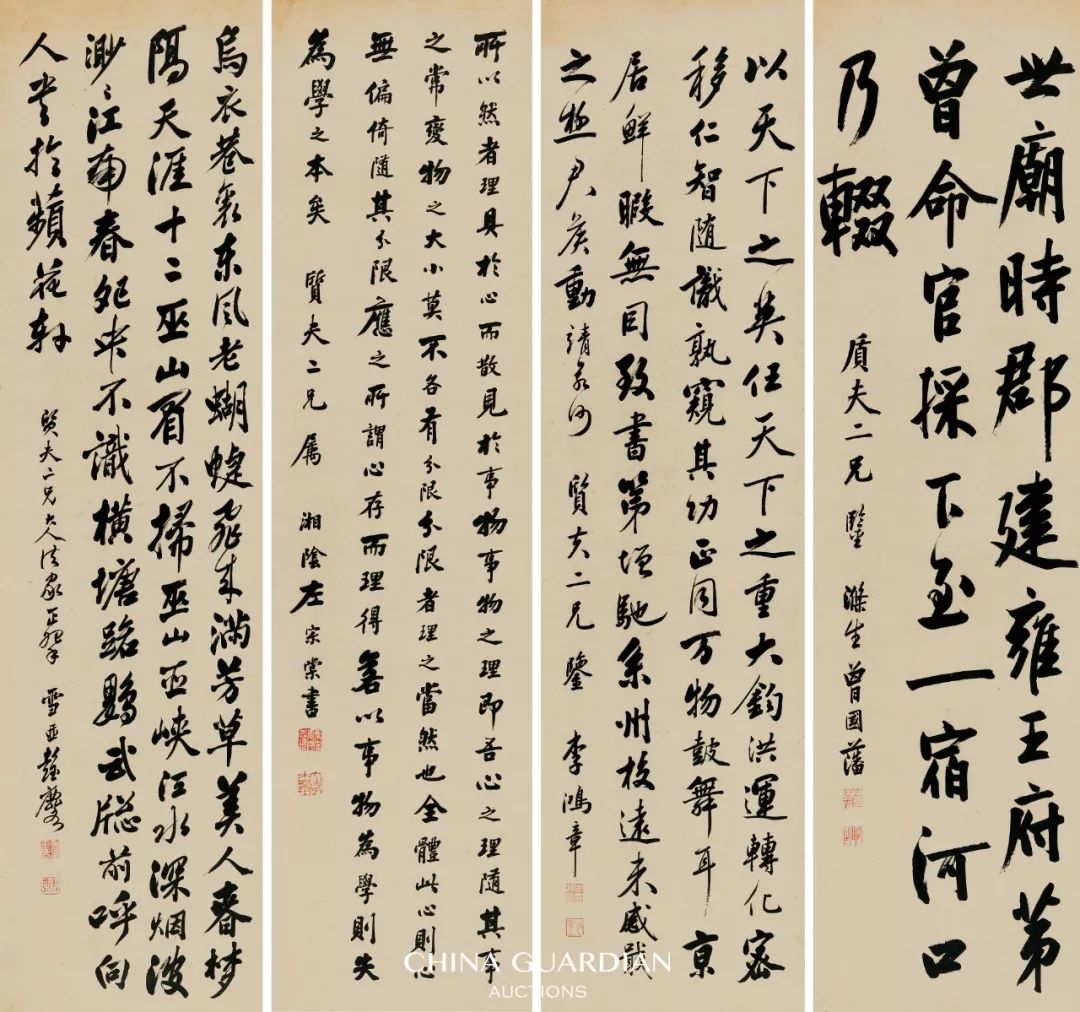 世廟時郡建雍王府第
曾命官採下至一宿河口
乃輟
質夫二兄 鑒 滌生曾國藩
以天下之英任天下之重大鈞洪運轉化密
移仁智随識孰窺其功正同万物鼓舞耳京
居鮮暇無因致書第增馳系州校遠来感戢
之極尹侯動靖
質夫二兄 鑒 李鴻章
所以然者理具於心而散見於事物事物之理即吾心之理隨其事
之常變物之大小莫不各有分限分限者理之當然也全體此心則心
無偏倚隨其分限應之所謂心存而理得若以事物為學則失
為學之本矣 質夫二兄 属 湘陰左宗棠書
烏衣巷裏东风老蝴蜨飛来滿芳草美人春梦
隔天涯十二巫山眉不掃巫山巫峽江水深烟波
渺渺江南春起来不識橫塘路鸚武牎前呼向
人 於蘋花
質夫二兄大人法家正 雪 彭
CHINA GUARDIAN
AUCTIONS